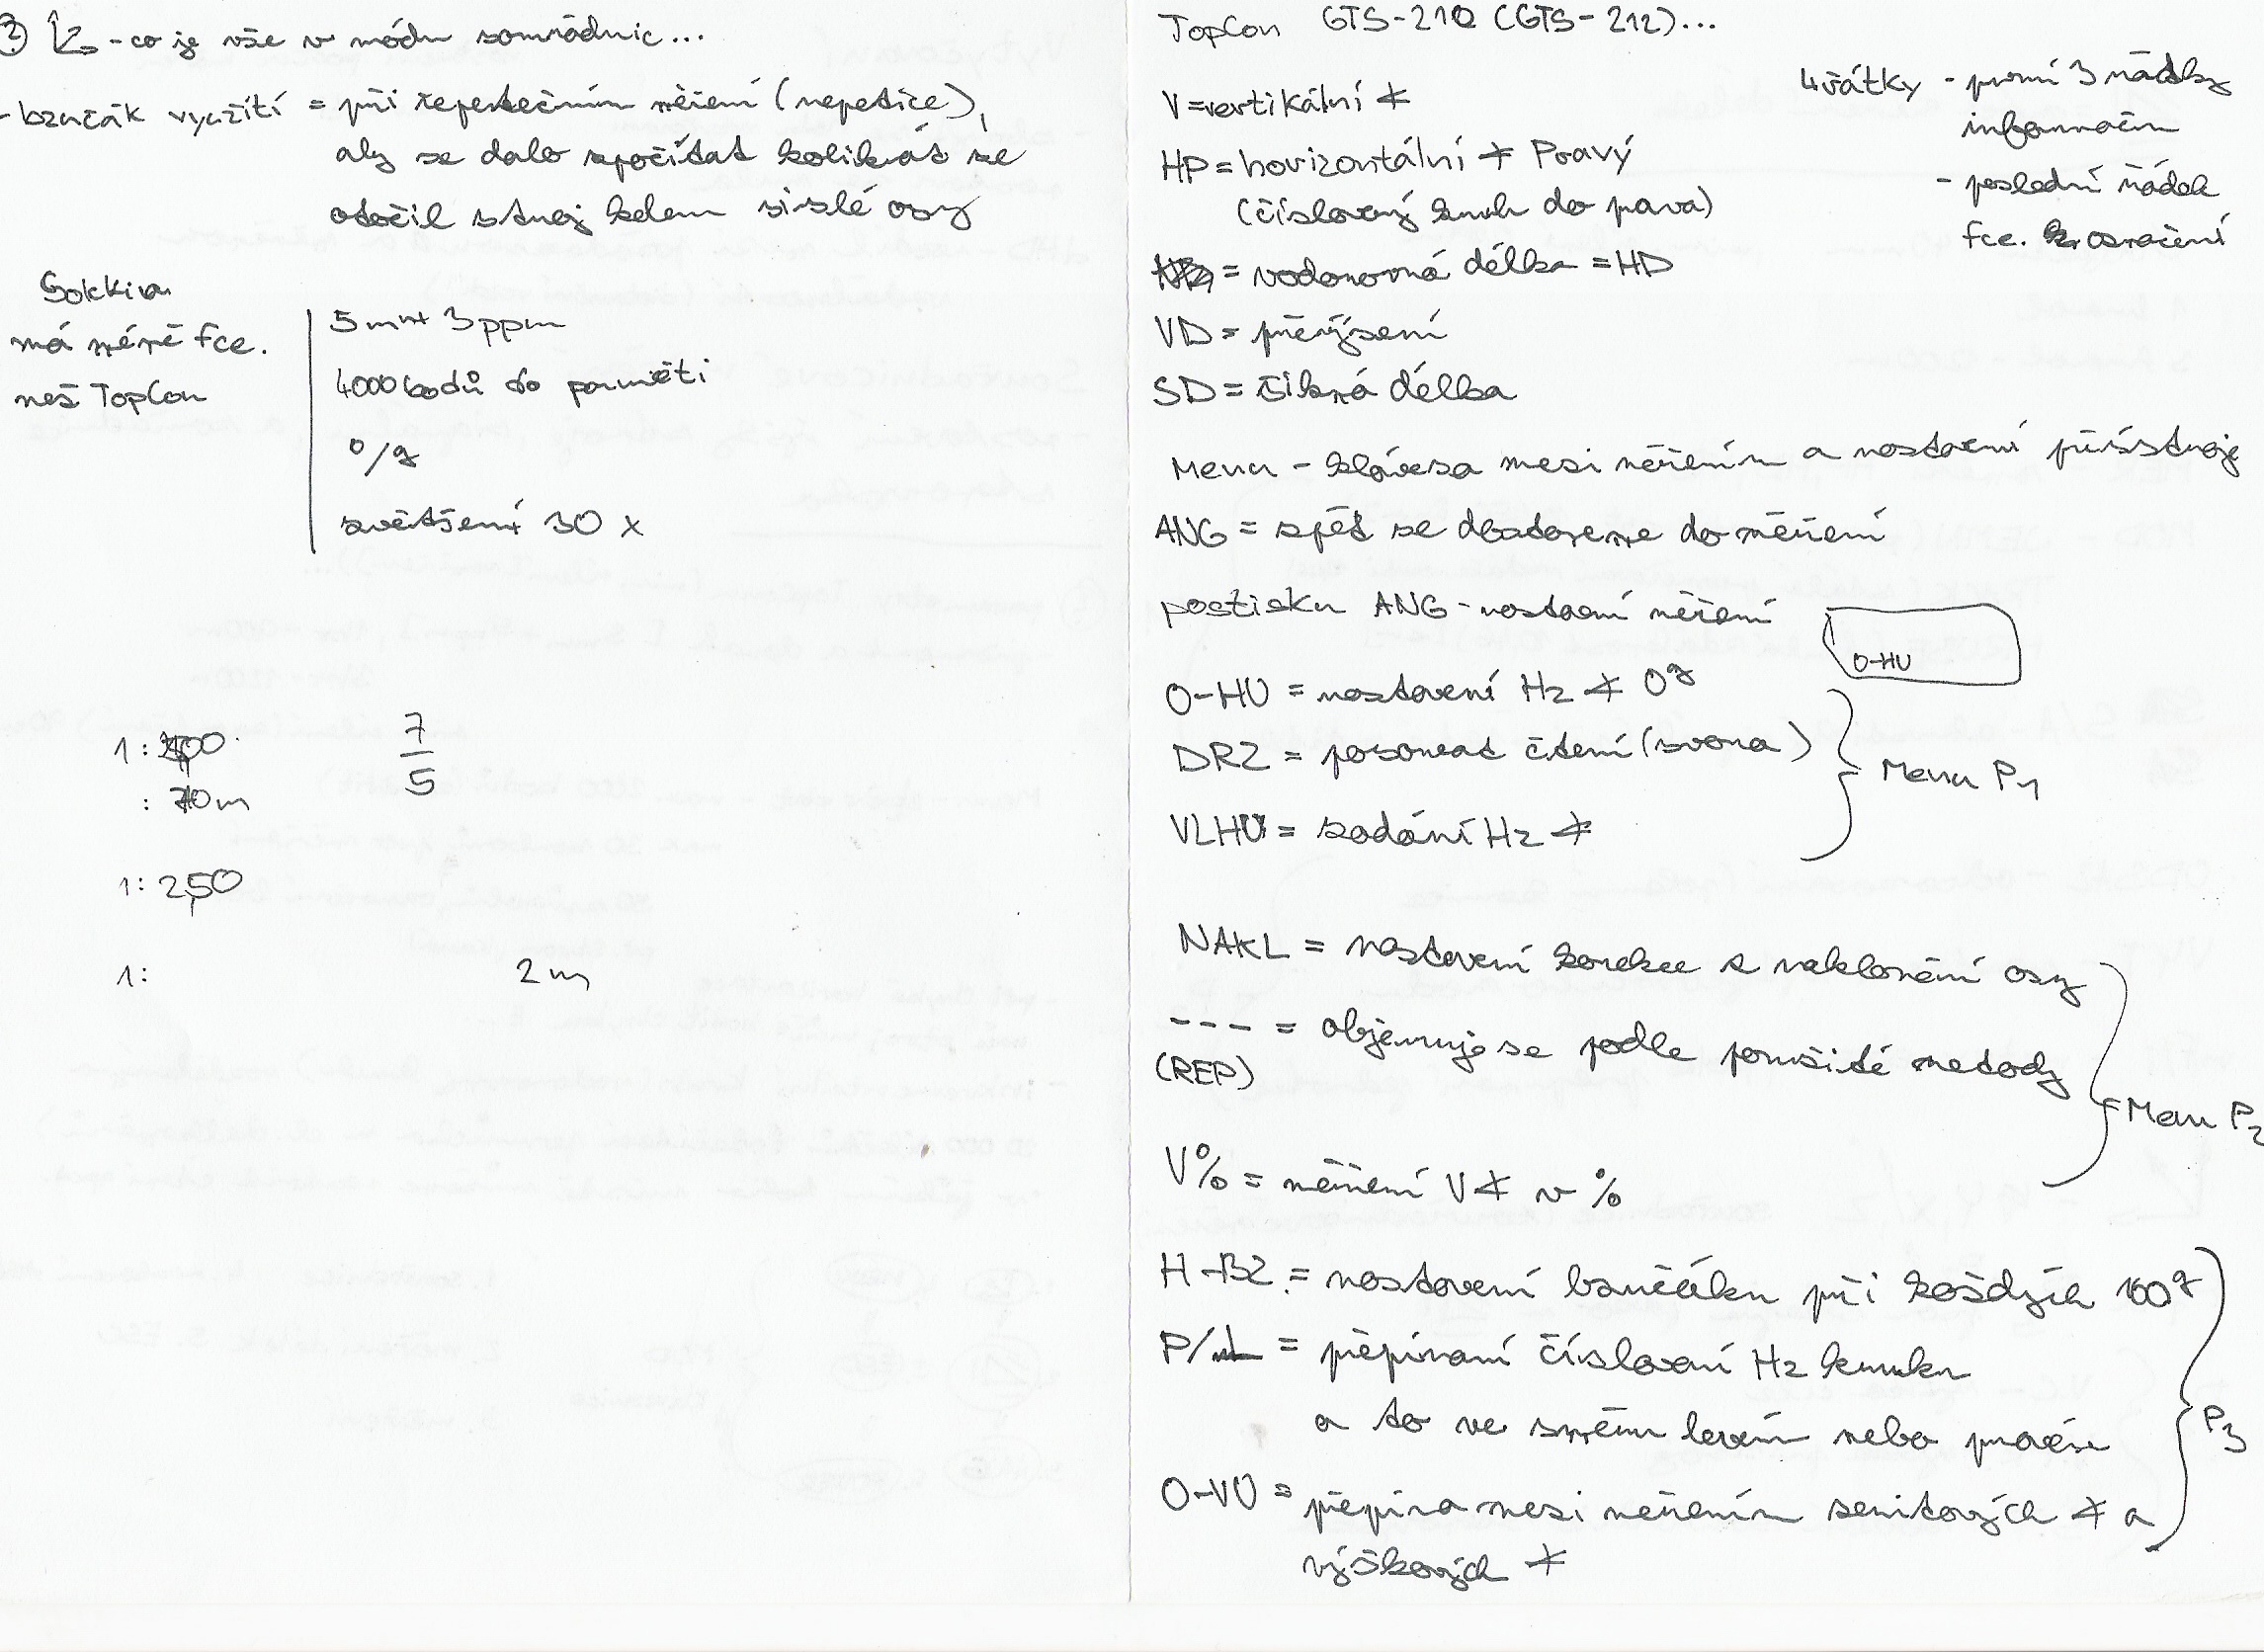 ? - co je vše v módu souřadnic...
- bzučák využití = při repetečním měření (repetice),
aby se dalo spočítat kolikrát se
otočil stroj kolem svislé osy
Sokkia
má méně fce.
než TopCon
5mm+ 3ppm
4000 bodů do paměti
°/g
zvětšení 30 x
7
5
: 70m
1: 250
1:
2m
TopCon GTS-210 (GTS-212)...
V=vertikální ∢
HP=horizontální ∢ Pravý
(číslovaný kruh do prava)
= vodorovná délka = HD
VD = převýšení
SD = šikmá délka
4řátky - první 3 řádky
informačn
- poslední řádek
fce. označení
Menu - klávesa mezi měřením a nastavení přístroje
ANG = zpět se dostaneme do měření
po stisku ANG - nastavní měření
O-HU
O-HU = nastavení Hz ∢ 0g
DRZ = pozornat čtení (svora)
VLHU = zadání Hz ∢
Menu P1
NAKL = nastavení korekce z naklonění osy
--- = objevuje se podle použité metody
(REP)
V% = měření V∢ v %
Menu P2
H-BZ = nastavení bzučáku při každých 100g
P/L = přepínaní číslovaní Hz kruhu
a to ve směru levém nebo pravém
O-VU = přepína mezi měřením zenitových ∢ a
výškových ∢
P3